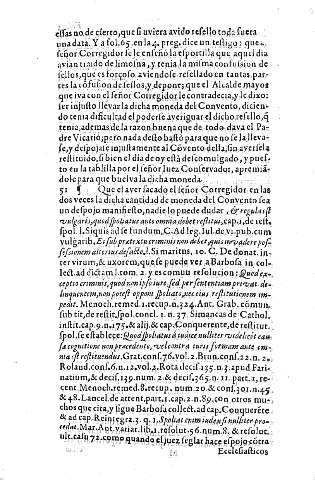 essas no de cierto, que si uviera avido resello toda fuera
una data. Y a fol. 65. en la 4. preg. dice un testigo: que a
señor Corregidor se le enseño la esportilla que aquel dia
avian traido de limosna, y tenia la misma confusion de
sellos, que es forçoso aviendose resellado en tantas par-
tes la cõfusion de sellos, y depone; que el Alcalde mayor
que iva con el señor Corregidor le contradecia, y le dixo:
ser injusto llevar la dicha moneda del Convento, dicien-
do tenia dificultad el poderse averiguar el dicho resello, q̃
tenia, ademàs de la razon buena que de todo dava el Pa-
dre Vicario; pero nada desto bastò para que no se la lleva-
se, y despojase injustamente al Cõvento della, sin aversela
restituido, si bien el dia de oy està descomulgado, y pues-
to en la tablilla por el señor Juez Conservador, apremiã-
dole para que buelva la dicha moneda.
51 ¶ Que el aver sacado el señor Corregidor en las
dos veces la dicha cantidad de moneda del Convento sea
un despojo manifiesto, nadie lo puede dudar, & regula est
vulgaris, quod spoliatus ante omnia debet restitui, cap. 1. de resti.
spol. l. Si quis ad se fundum, C. Ad leg. Iul. de vi pub. cum
vulgarib. Et sub prætextu criminis non debet quis invadere pos-
sessionem alterius de facto, l. Si maritus, 10. C. De donat. in-
ter virum, & uxorem, que se puede ver à Barbosa in col-
lect. ad dictam l. tom. 2. y es comun resolucion: Quod ex-
ceptio criminis, quod non ipso iure, sed per sententiam privat de-
linquentem, non potest opponi spoliato, nec eius restitutionem im-
pedit. Menoch. remed. 1. recup. n. 324. Ant. Grab. commun.
sub tit. de restit. spol. concl. 1. n. 37. Simancas de Cathol.
instit. cap. 9. n. 175. & alij, & cap. Conquerente, de restitut.
spol. se establece: Quod spoliatus à iudice nulliter videlicet cau-
sæ cognitione non præcedente, vel contra iuris formam ante om-
nia est restituendus. Grat. conf. 76. vol. 2. Brun. conf. 22. n. 2.
Roland. conf. 6. n. 12. vol. 2. Rota decis. 135. n. 3. apud Fari-
natium, & decis. 139. num. 2. & decis. 365. n. 11. part. 2. re-
cent. Menoch. remed. 8. recup. num. 20. & conf. 301. n. 45.
& 48. Lancel. de attent. part. 1. cap. 2. n. 89. con otros mu-
chos que cita, y sigue Barbosa collect. ad cap. Conquerẽte
& ad cap. Reintegra 3. q. 1. Spoliat enim iudex si nulliter pro-
cedat. Mar. Ant. variar. lib. 1. resolut. 56. num. 8. & resolut.
ult. casu 72. como quando el juez seglar hace espojo cõtra
Ecclesiasticos